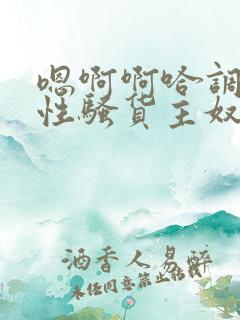 嗯啊啊哈調
性骚货主奴
酒香人易醉
未经同意禁止转载